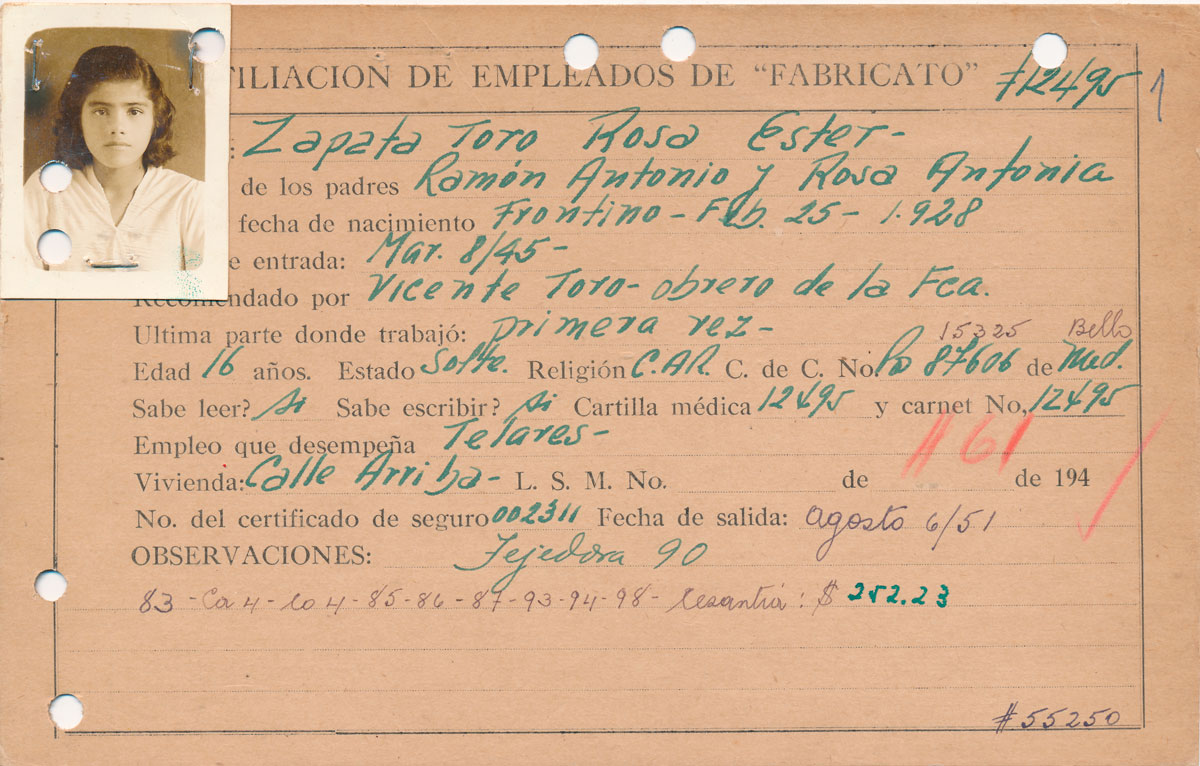 FILIACION DE EMPLEADOS DE "FABRICATO" 712495 1
: Zapata Toro Rosa Ester-
de los padres Ramón Antonio y Rosa Antonia
fecha de nacimiento Frontino - Feb. 25 - 1.928
e entrada: Mar. 8/45-
Recomendado por Vicente Toro - obrero de la Fca.
Ultima parte donde trabajó: primera vez- 15325 Bello
Edad 16 años. Estado Solte. Religión C.A.R. C. de C. No. 87606 de Med.
Sabe leer? si Sabe escribir? si Cartilla médica 12495 y carnet No, 12495
Empleo que desempeña Telares-
# 61
Vivienda: Calle Arriba- L. S. M. No. de de 194
No. del certificado de seguro 002311 Fecha de salida: agosto 6/51
OBSERVACIONES: Tejedora 90
83 - Ca 4 - Co 4 - 85 - 86 - 87 - 93 - 94 - 98 - Cesantía: $ 252.23
# 55250